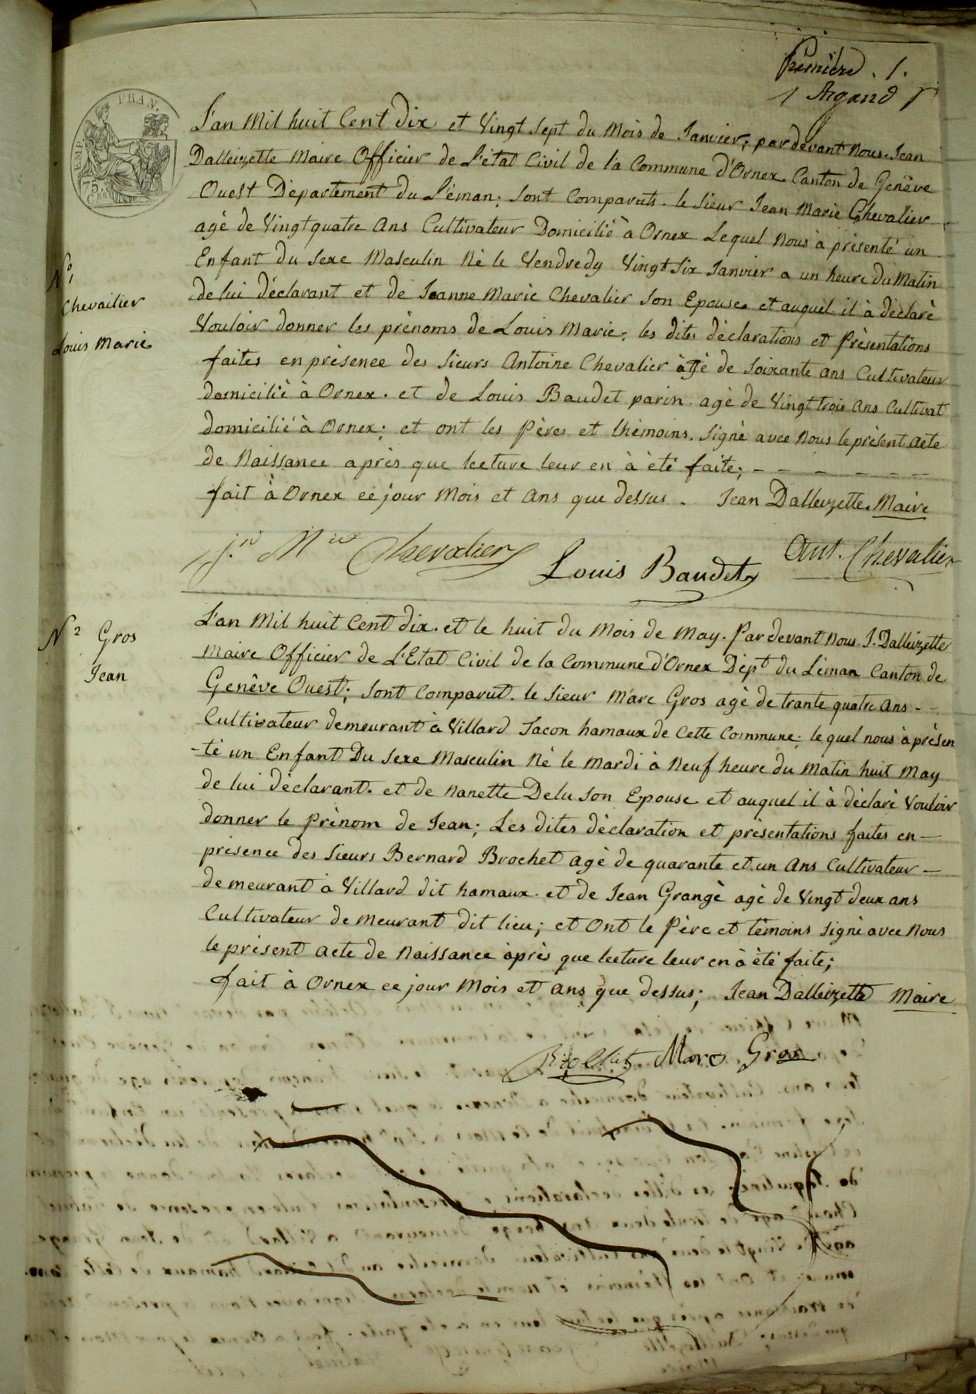 Première . 1.
Argand
EMP. FRAN.
75.
CEN.
L'an Mil huit Cent Dix et Vingt Sept du Mois de Janvier; par devant Nous Jean
Dalleizette Maire Officier de L'état Civil de la Commune d'Ornex Canton de Genêve
Ouest Département du Léman; Sont Comparuts le Sieur Jean Marie Chevalier
agé de Vingt quatre Ans Cultivateur Domicilié à Ornex Lequel Nous à présenté un
Enfant du Sexe Masculin Né le Vendredy Vingt Six Janvier a un heure du Matin
de lui déclarant et de Jeanne Marie Chevalier Son Epouse et auquel il à déclaré
Vouloir donner les prénoms de Louis Marie; les dites déclarations et Présentations
faites en présence des Sieurs Antoine Chevalier âgé de Soixante ans Cultivateur
domicilié à Ornex. et de Louis Baudet parin agé de Vingt trois Ans Cultivat
domicilié à Ornex; et ont les Pères et themoins Signé avec Nous le présent acte
de Naissance après que lecture leur en à été faite;
fait à Ornex ce jour Mois et Ans que dessus. Jean Dalleizette Maire
N° 1
Chevailier
Louis Marie
Jn Mie Chevalier Louis Baudet Ant. Chevalier
N 2 Gros
Jean
L'an Mil huit Cent Dix. et le huit du Mois de May. Par devant Nous J. Dalleizette
Maire Officier de L'Etat Civil de la Commune d'Ornex Dépt du Léman Canton de
Genêve Ouest; Sont Comparut. le Sieur Marc Gros agé de trante quatre Ans
Cultivateur demeurant à Villard Tacon hamaux de Cette Commune; lequel nous à présen
-té un Enfant Du Sexe Masculin Né le Mardi à Neuf heure du Matin huit May
de lui déclarant. et de Nanette Delu Son Epouse et auquel il à déclaré Vouloir
donner le Prénom de Jean; Les dites déclaration et présentations faites en
présence des Sieurs Bernard Brochet agé de quarante et un Ans Cultivateur
demeurant à Villard dit hamaux. et de Jean Grangé agé de Vingt deux ans
Cultivateur de Meurant dit lieu; et Ont le Père et témoins Signé avec Nous
le présent acte de Naissance après que lecture leur en à été faite;
fait à Ornex ce jour Mois et Ans que dessus; Jean Dalleizette Maire
Marc Gros